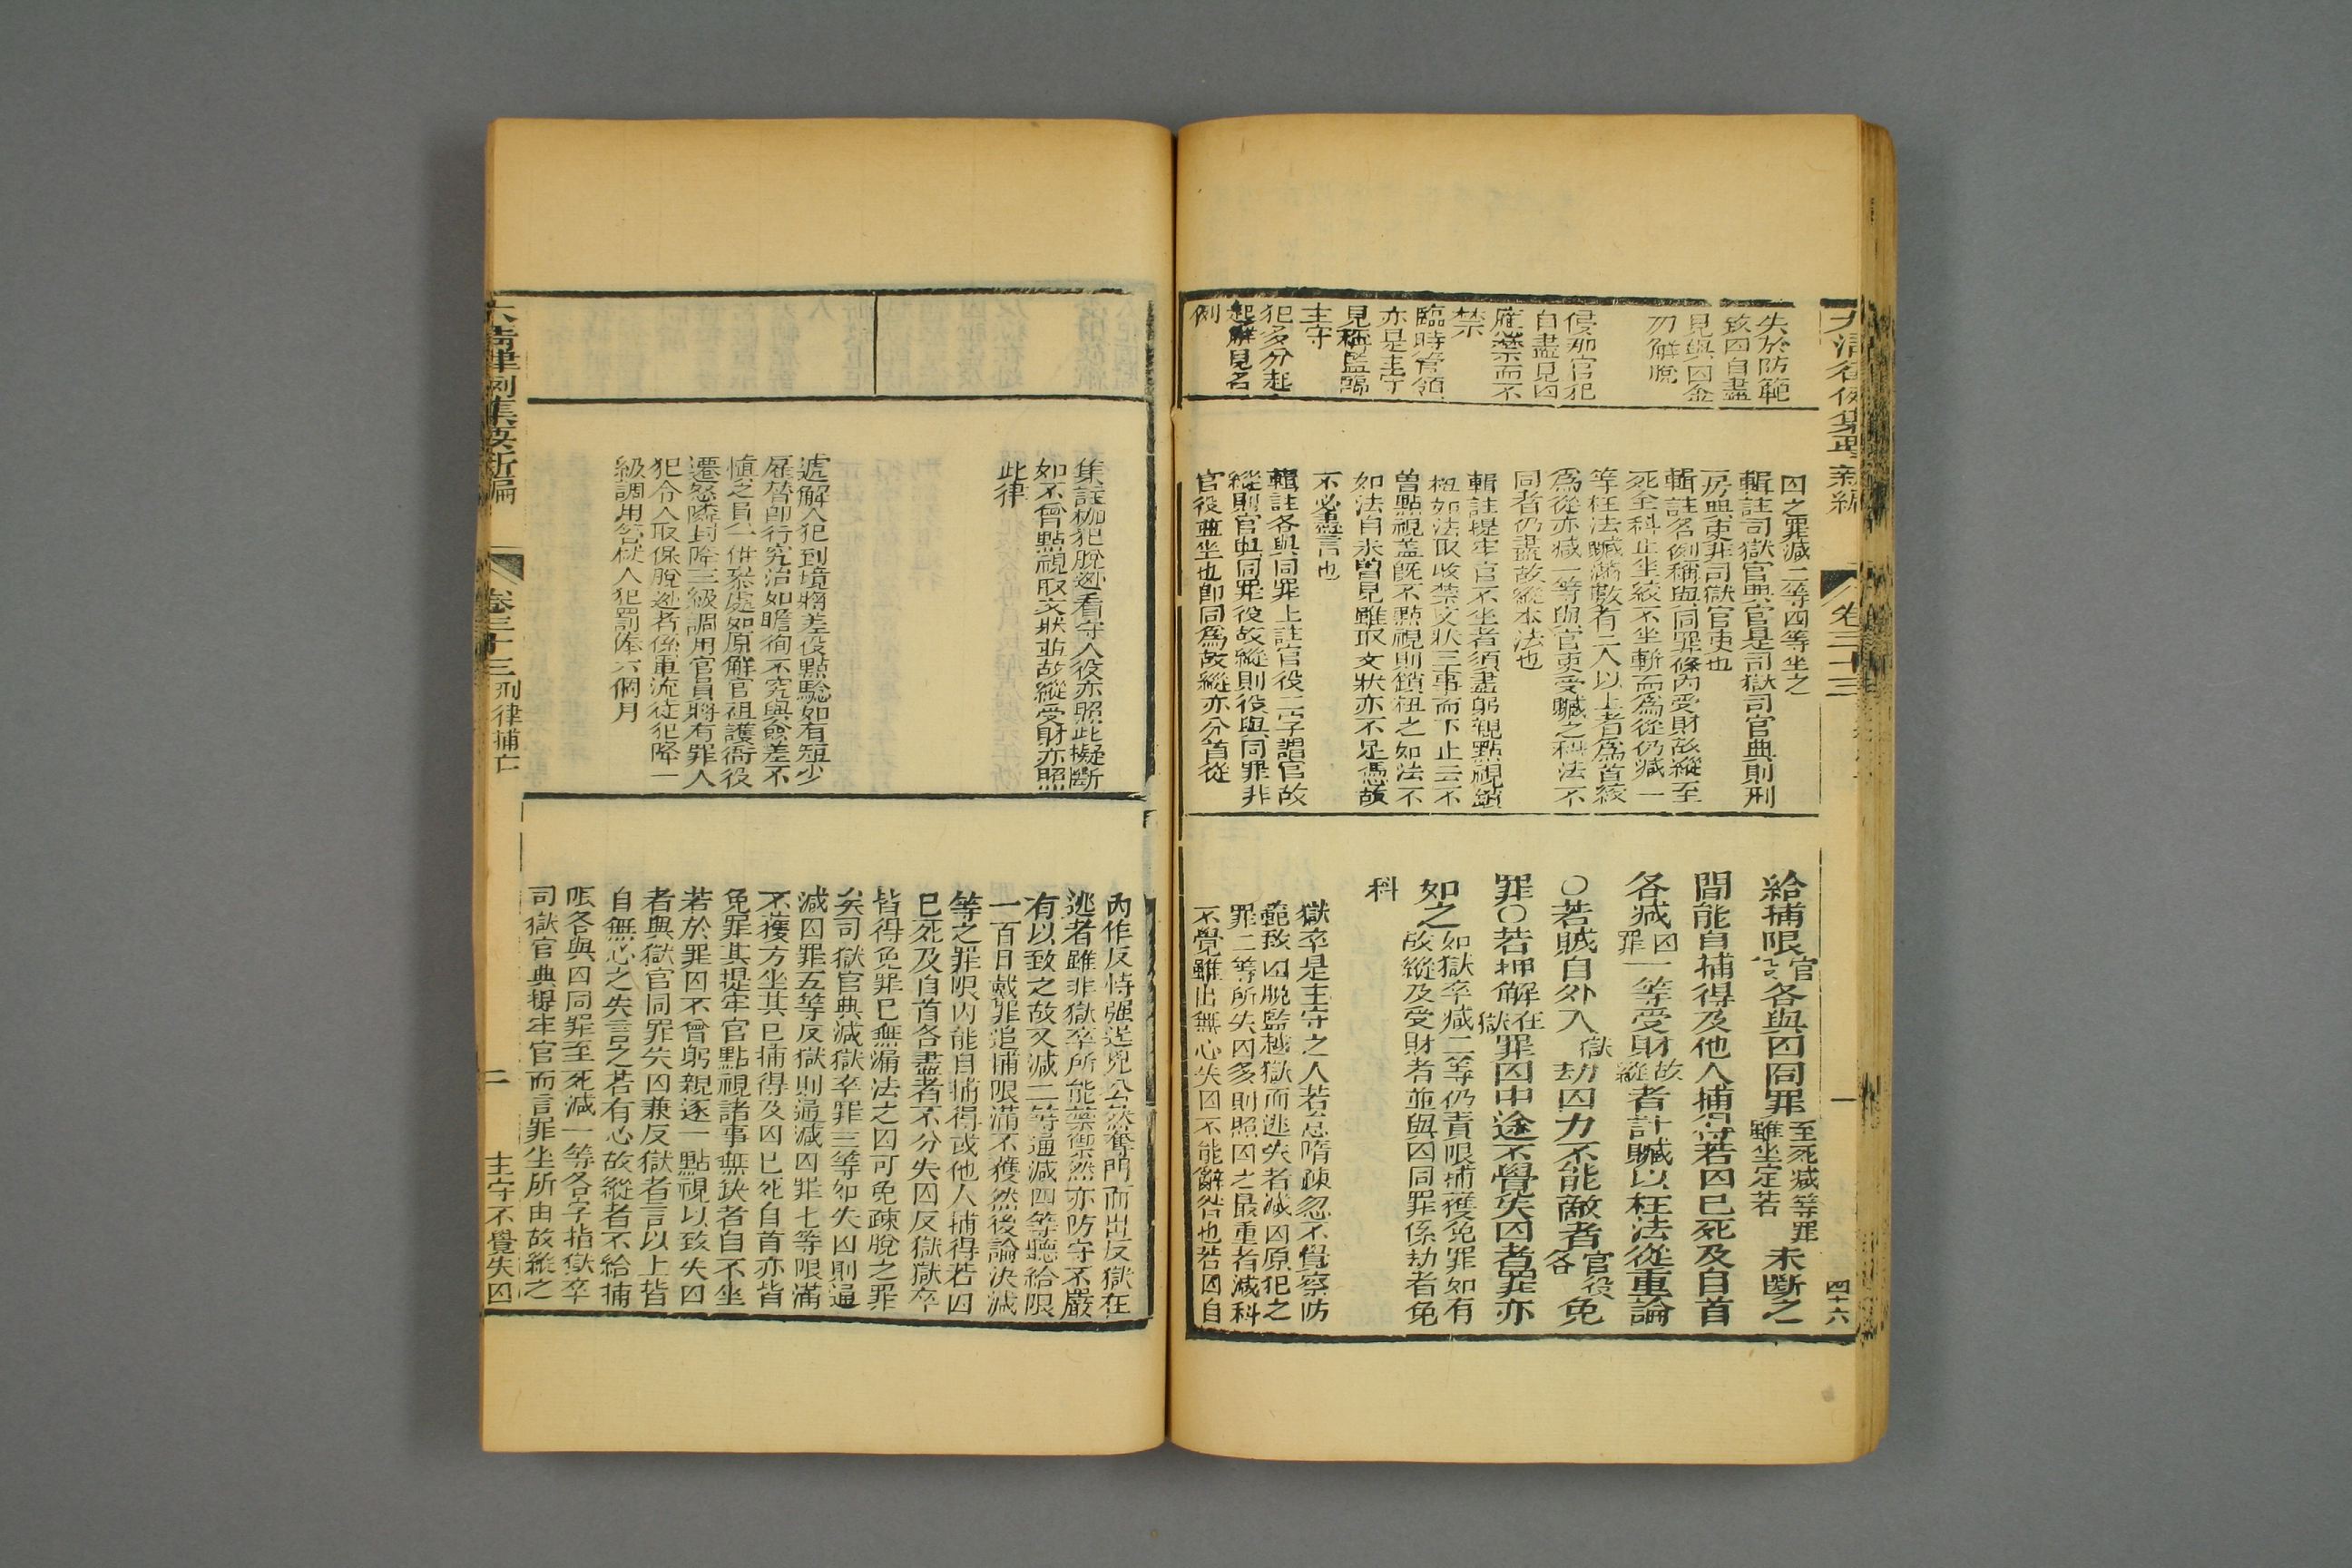 大清律例集要新編
卷三十三
一
四十六
失於防範
致囚自盡
見與囚金
刃解脫
侵那官犯
自盡見囚
應禁而不
禁
臨時管領
亦是主守
見稱監臨
主守
犯多分起
起解見名
例
囚之罪減二等四等坐之
輯註司獄官典官是司獄司官典則刑
房典吏非司獄官吏也
輯註名例稱與同罪條內受財故縱至
死全科止坐絞不坐斬而為從仍減一
等枉法贓滿數有二人以上者為首絞
為從亦減一等與官吏受贓之科法不
同者仍盡故縱本法也
輯註提牢官不坐者須盡躬親點視鎖
杻如法取收禁文狀三事而下止云不
曾點視蓋旣不點視則鎖杻之如法不
如法自未曾見雖取文狀亦不足憑故
不必盡言也
輯註各與同罪上註官役二字謂官故
縱則官與同罪役故縱則役與同罪非
官役並坐也卽同為故縱亦分首從
給捕限官役各與囚同罪至死減等罪雖坐定若未斷之
間能自捕得及他人捕得若囚已死及自首
各減囚罪一等受財故縱者計贓以枉法從重論
○若賊自外入獄劫囚力不能敵者官役各免
罪○若押解在獄罪囚中途不覺失囚者罪亦
如之如獄卒減二等仍責限捕獲免罪如有故縱及受財者並與囚同罪係劫者免
科
獄卒是主守之人若怠隋疎忽不覺察防
範致囚脫監越獄而逃失者減囚原犯之
罪二等所失囚多則照囚之最重者減科
不覺雖出無心失囚不能辭咎也若囚自
集註枷犯脫逃看守人役亦照此擬斷
如不曾點視取文狀並故縱受財亦照
此律
遞解人犯到境將差役點驗如有短少
雇替卽行究治如瞻徇不究與僉差不
慎之員一併參處如原解官袒護衙役
遷怒隣封降三級調用官員將有罪人
犯令人取保脫逃者係軍流徒犯降一
級調用笞杖人犯罰俸六個月
內作反恃强逞兇公然奪門而出反獄在
逃者雖非獄卒所能禁禦然亦防守不嚴
有以致之故又減二等通減四等聽給限
一百日戴罪追捕限滿不獲然後論決減
等之罪限內能自捕得或他人捕得若囚
已死及自首各盡者不分失囚反獄獄卒
皆得免罪已無漏法之囚可免疎脫之罪
矣司獄官典減獄卒罪三等如失囚則通
減囚罪五等反獄則通減囚罪七等限滿
不獲方坐其已捕得及囚已死自首亦皆
免罪其提牢官點視諸事無缺者自不坐
若於罪囚不曾躬親逐一點視以致失囚
者與獄官同罪失囚兼反獄者言以上皆
自無心之失言之若有心故縱者不給捕
限各與囚同罪至死減一等各字指獄卒
司獄官典提牢官而言罪坐所由故縱之
大清律例集要新編
卷三十三刑律捕亡
二
主守不覺失囚